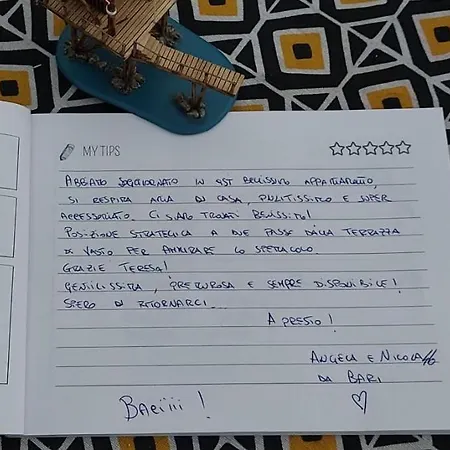 MY TIPS
ABBIAMO SOGGIORNATO IN QST BELLISSIMO APPARTAMENTO,
SI RESPIRA ARIA DI CASA, PULITISSIMO E SUPER
ACCESSORIATO. CI SIAMO TROVATI BENISSIMO!
POSIZIONE STRATEGICA A DUE PASSI DALLA TERRAZZA
DI VASTO PER AMMIRARE LO SPETTACOLO.
GRAZIE TERESA!
GENTILISSIMA, PREMUROSA E SEMPRE DISPONIBILE!
SPERO DI RITORNARCI...
A PRESTO!
ANGELA E NICOLA
DA BARI
Baciiii!